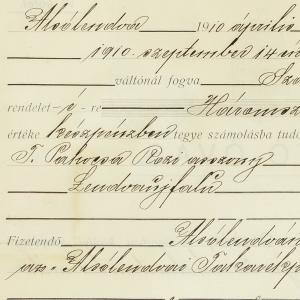 Alsólendva 1910 április
1910. szeptember 14-én
váltónál fogva Szá
rendelet-é-re Háromsz
értéke készpénzben tegye számolásba tudó
T. Pahocsa Rozi asszony
Lendvaujfalu
Fizetendő Alsólendván
az Alsólendvai Takarékp